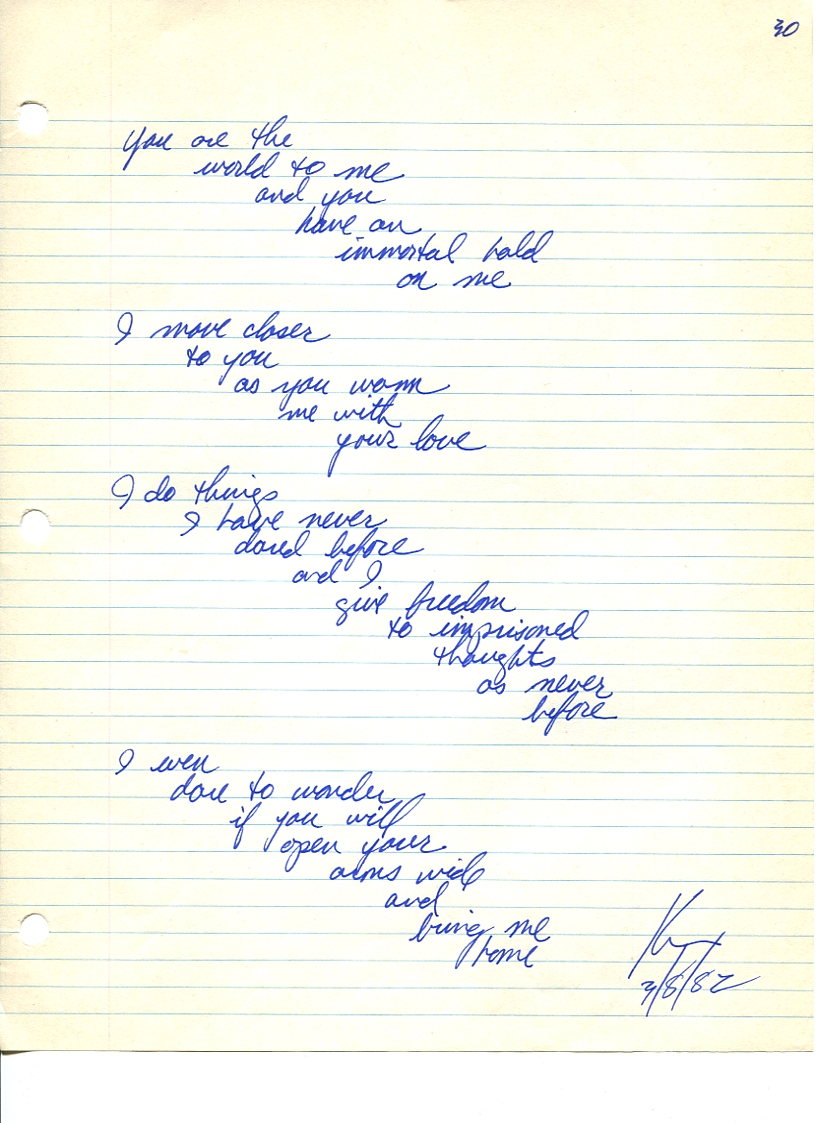 30
You are the
world to me
and you
have an
immortal hold
on me
I move closer
to you
as you warm
me with
your love
I do things
I have never
dared before
and I
give freedom
to imprisoned
thoughts
as never
before
I even
dare to wonder
if you will
open your
arms wide
and
bring me
home
3/8/82